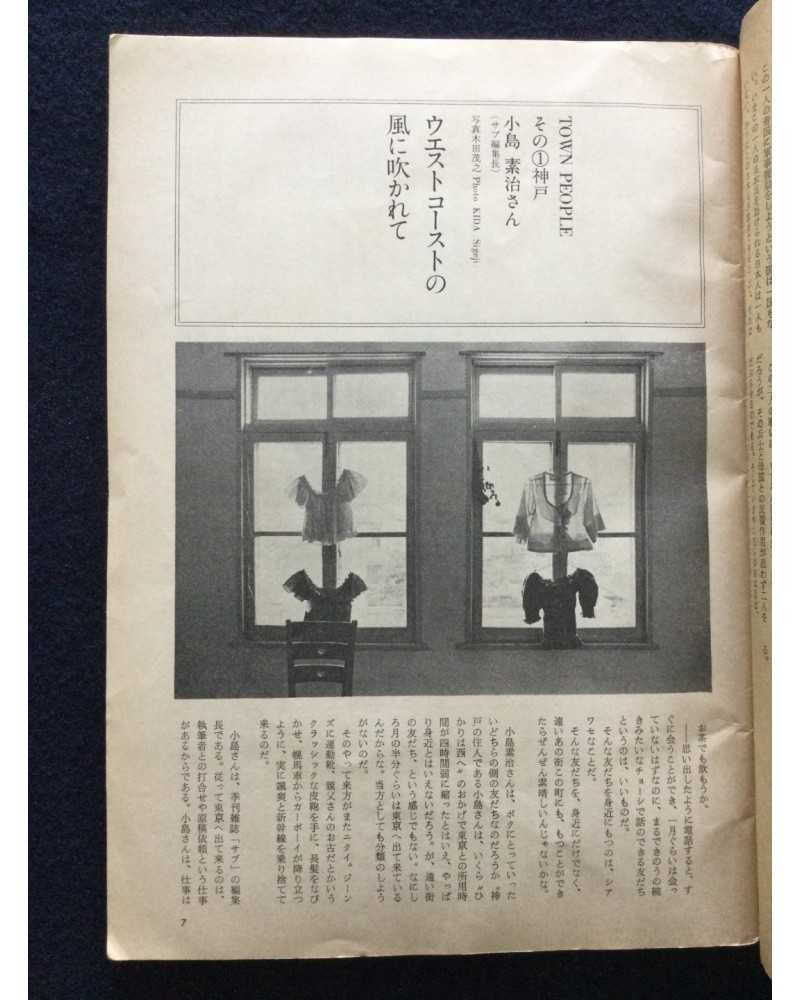 TOWN PEOPLE
その①神戸
小島 素治さん
(サブ編集長)
写真木田茂之/Photo KIDA Sigeji
ウエストコーストの
風に吹かれて
お茶でも飲もうか。
――思い出したように電話すると、す
ぐに会うことができ、一月ぐらいは会っ
ていないはずなのに、まるできのうの続
きみたいなチョーシで話のできる友だち
というのは、いいものだ。
そんな友だちを身近にもつのは、シア
ワセなことだ。
そんな友だちを、身近にだけでなく、
遠いあの街この町にも、もつことができ
たらぜんぜん素晴しいんじゃないかな。
小島素治さんは、ボクにとっていった
いどちらの側の友だちなのだろうか。神
戸の住人である小島さんは、いくら〝ひ
かりは西へ〟のおかげで東京との所用時
間が四時間弱に縮ったとはいえ、やっぱ
り身近とはいえないだろう。が、遠い街
の友だち、という感じでもない。なにし
ろ月の半分ぐらいは東京へ出て来ている
んだからな。当方としても分類のしよう
がないのだ。
そのやって来方がまたニクイ。ジーン
ズに運動靴、親父さんのお古だとかいう
クラッシックな皮鞄を手に、長髪をなび
かせ、幌馬車からカーボーイが降り立つ
ように、実に颯爽と新幹線を乗り捨てて
来るのだ。
小島さんは、季刊雑誌「サブ」の編集
長である。従って東京へ出て来るのは、
執筆者との打合せや原稿依頼という仕事
があるからである。小島さんは、仕事は
7